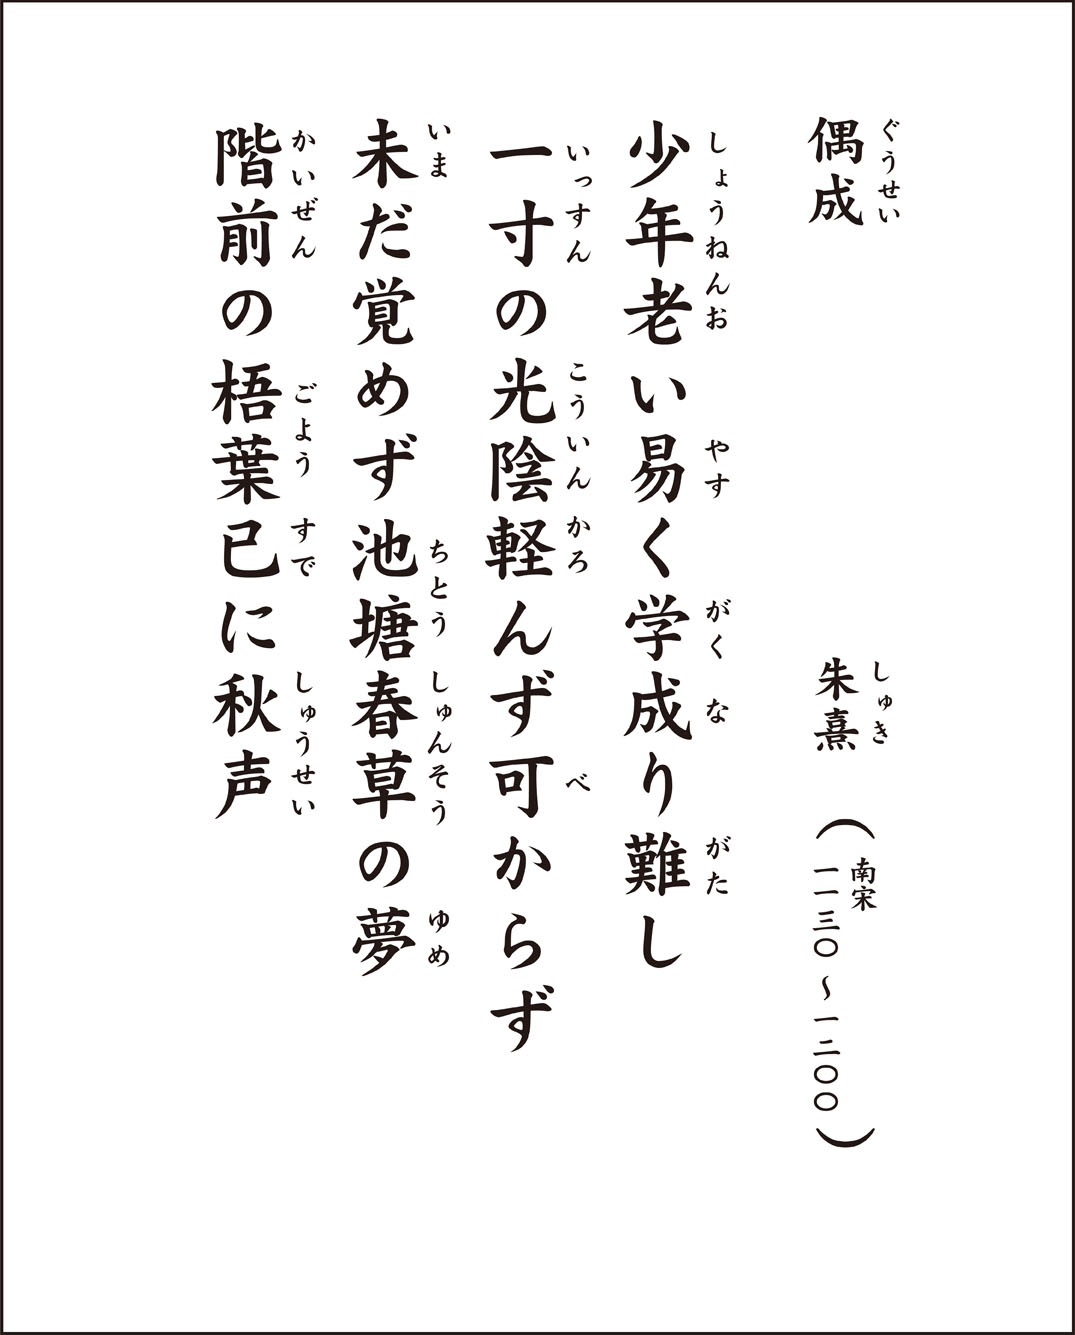 偶成
ぐうせい
朱熹
しゅき
(南宋
一一三〇~一二〇〇)
少年老い易く学成り難し
しょうねんお やす がく な がた
一寸の光陰軽んず可からず
いっすん こういん かろ べ
未だ覚めず池塘春草の夢
いま ちとう しゅんそう ゆめ
階前の梧葉已に秋声
かいぜん ごよう すで しゅうせい